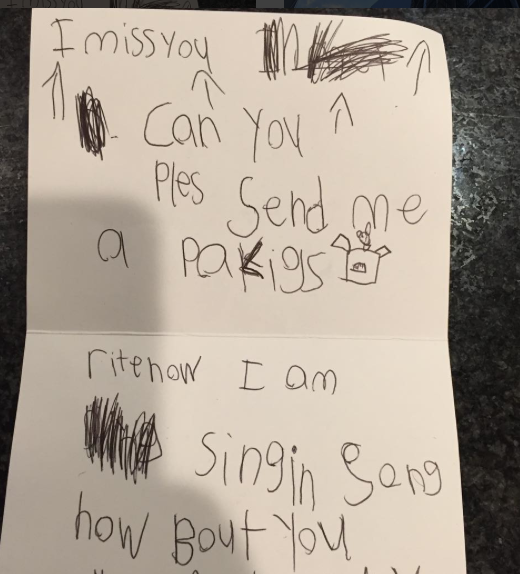 I miss you
Can you
Ples Send me
a pakigs
ritenow I am
singin Song
how Bout you